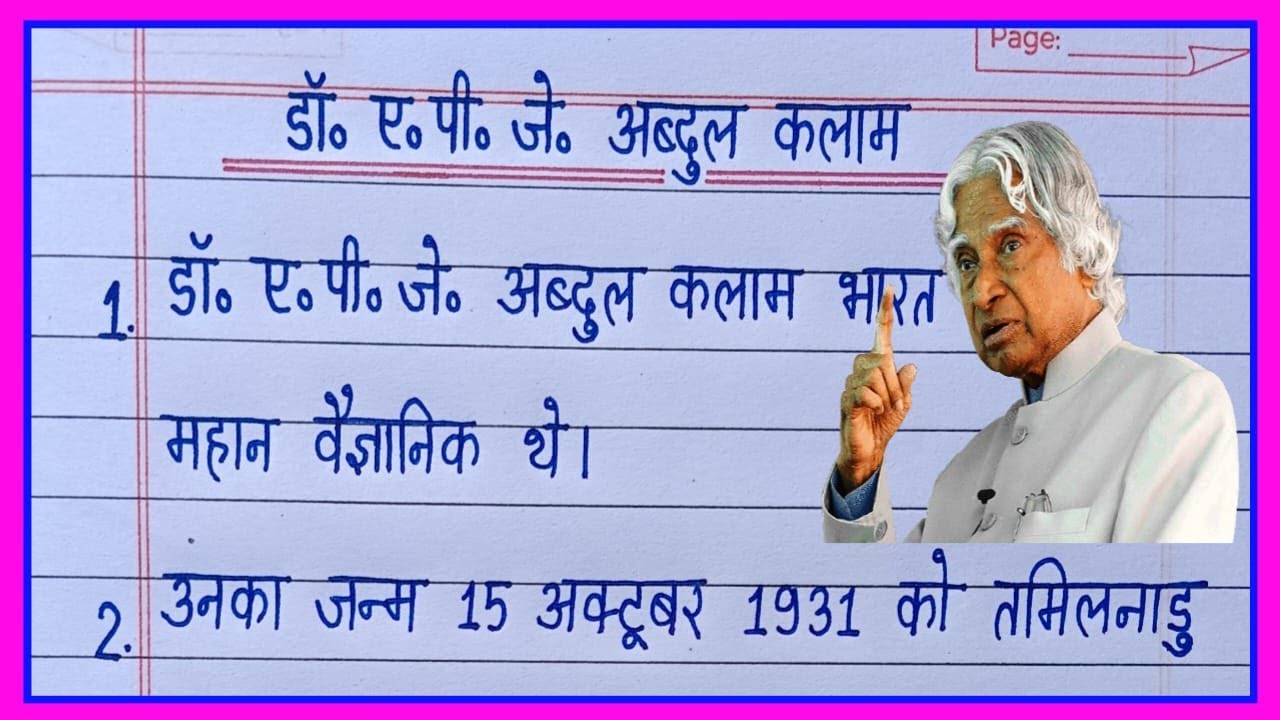 Page:
डॉ० ए. पी. जे. अब्दुल कलाम
1. डॉ० ए. पी. जे. अब्दुल कलाम भारत
महान वैज्ञानिक थे।
2. उनका जन्म 15 अक्टूबर 1931 को तमिलनाडु